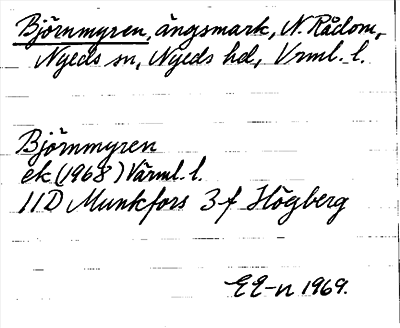 Björnmyren, ängsmark, N. Rådom,
Nyeds sn, Nyeds hd, Vrml. l.
Björnmyren
ek (1968) Värml. l.
11D Munkfors 3f Högberg
EE-n 1969.